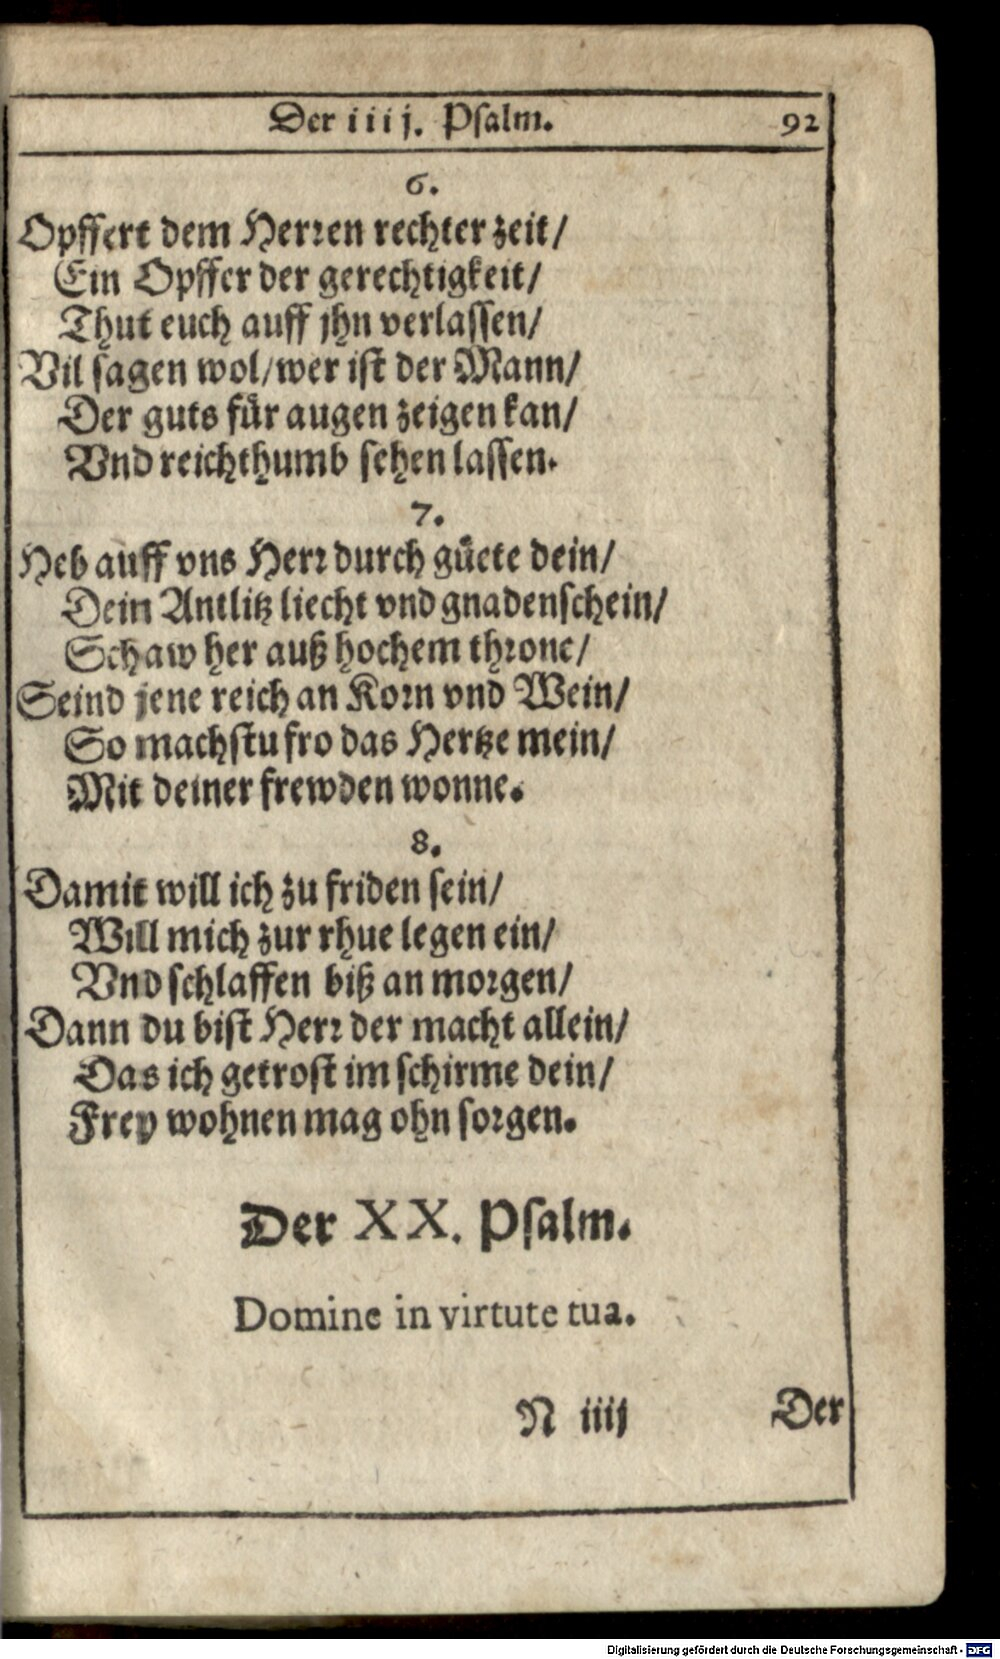 Der iiij. Psalm. 92
6.
Opffert dem Herren rechter zeit/
Ein Opffer der gerechtigkeit/
Thut euch auff jhn verlassen/
Vil sagen wol/wer ist der Mann/
Der guts für augen zeigen kan/
Vnd reichthumb sehen lassen.
7.
Heb auff vns Herr durch güete dein/
Dein Antlitz liecht vnd gnadenschein/
Schaw her auß hochem throne/
Seind jene reich an Korn vnd Wein/
So machstu fro das Hertze mein/
Mit deiner frewden wonne.
8.
Damit will ich zu friden sein/
Will mich zur rhue legen ein/
Vnd schlaffen biß an morgen/
Dann du bist Herr der macht allein/
Das ich getrost im schirme dein/
Frey wohnen mag ohn sorgen.
Der XX. Psalm.
Domine in virtute tua.
N iiij Der
Digitalisierung gefördert durch die Deutsche Forschungsgemeinschaft - DFG